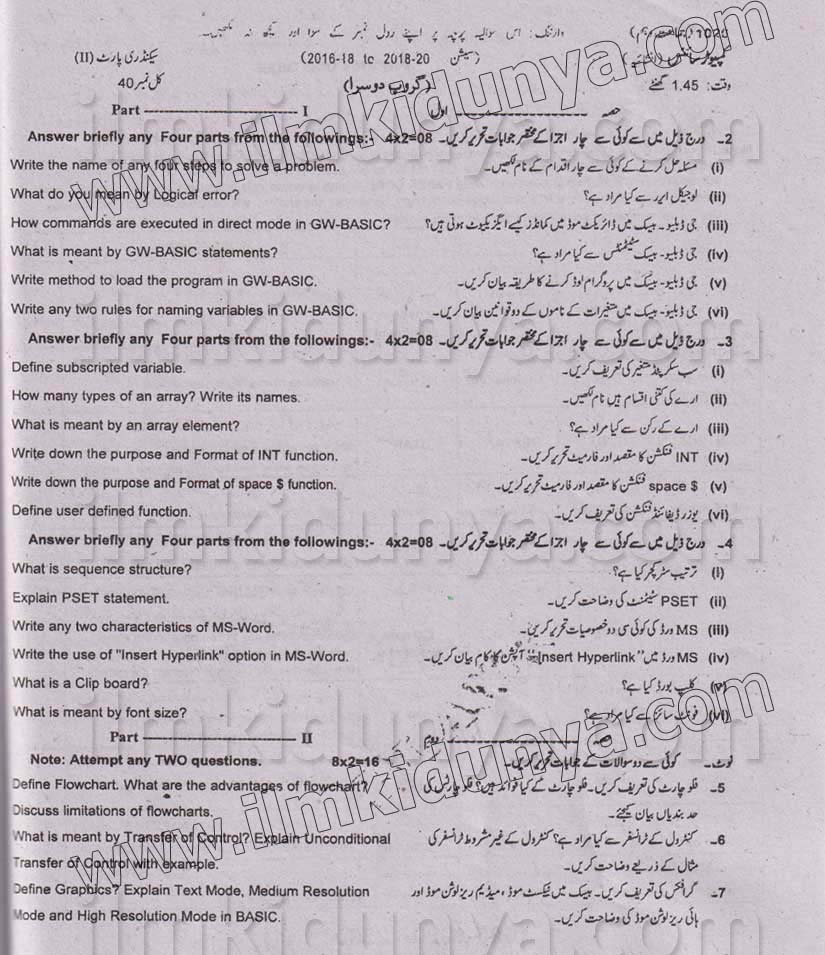 وارننگ: اس سوالیہ پرچہ پر اپنے رول نمبر کے سوا اور کچھ نہ لکھیں۔
سیشن (2016-18 tc 2018-20) سیکنڈری پارٹ (II)
وقت: 1.45 گھنٹے (گروپ دوسرا) کل نمبر 40
Part ---------- I حصہ ---------- اول
Answer briefly any Four parts from the followings:- 4x2=08 2۔ درج ذیل میں سے کوئی سے چار اجزا کے مختصر جوابات تحریر کریں۔
Write the name of any four steps to solve a problem. (i) مسئلہ حل کرنے کے کوئی سے چار اقدام کے نام لکھیں۔
What do you mean by Logical error? (ii) لوجیکل ایرر سے کیا مراد ہے؟
How commands are executed in direct mode in GW-BASIC? (iii) جی ڈبلیو۔ بیسک میں ڈائریکٹ موڈ میں کمانڈز کیسے ایگزیکیوٹ ہوتی ہیں؟
What is meant by GW-BASIC statements? (iv) جی ڈبلیو- بیسک سٹیٹمنٹس سے کیا مراد ہے؟
Write method to load the program in GW-BASIC. (v) جی ڈبلیو- بیسک میں پروگرام لوڈ کرنے کا طریقہ بیان کریں۔
Write any two rules for naming variables in GW-BASIC. (vi) جی ڈبلیو- بیسک میں متغیرات کے ناموں کے دو قوانین بیان کریں۔
Answer briefly any Four parts from the followings:- 4x2=08 3۔ درج ذیل میں سے کوئی سے چار اجزا کے مختصر جوابات تحریر کریں۔
Define subscripted variable. (i) سب سکرپٹڈ متغیر کی تعریف کریں۔
How many types of an array? Write its names. (ii) ارے کی کتنی اقسام ہیں نام لکھیں۔
What is meant by an array element? (iii) ارے کے رکن سے کیا مراد ہے؟
Write down the purpose and Format of INT function. (iv) INT فنکشن کا مقصد اور فارمیٹ تحریر کریں۔
Write down the purpose and Format of space $ function. (v) space $ فنکشن کا مقصد اور فارمیٹ تحریر کریں۔
Define user defined function. (vi) یوزر ڈیفائنڈ فنکشن کی تعریف کریں۔
Answer briefly any Four parts from the followings:- 4x2=08 4۔ درج ذیل میں سے کوئی سے چار اجزا کے مختصر جوابات تحریر کریں۔
What is sequence structure? (i) ترتیب سٹرکچر کیا ہے؟
Explain PSET statement. (ii) PSET سٹیٹمنٹ کی وضاحت کریں۔
Write any two characteristics of MS-Word. (iii) MS ورڈ کی کوئی سی دو خصوصیات تحریر کریں۔
Write the use of "Insert Hyperlink" option in MS-Word. (iv) MS ورڈ میں "Insert Hyperlink" آپشن کا کام بیان کریں۔
What is a Clip board? (v) کلپ بورڈ کیا ہے؟
What is meant by font size? (vi) فونٹ سائز سے کیا مراد ہے؟
Part ---------- II حصہ ---------- دوم
Note: Attempt any TWO questions. 8x2=16 نوٹ۔ کوئی سے دو سوالات کے جوابات تحریر کریں۔
Define Flowchart. What are the advantages of flowchart? 5۔ فلو چارٹ کی تعریف کریں۔ فلو چارٹ کے کیا فوائد ہیں؟ فلو چارٹس کی
Discuss limitations of flowcharts. حد بندیاں بیان کیجئے۔
What is meant by Transfer of Control? Explain Unconditional 6۔ کنٹرول کے ٹرانسفر سے کیا مراد ہے؟ کنٹرول کے غیر مشروط ٹرانسفر کی
Transfer of Control with example. مثال کے ذریعے وضاحت کریں۔
Define Graphics? Explain Text Mode, Medium Resolution 7۔ گرافکس کی تعریف کریں۔ بیسک میں ٹیکسٹ موڈ، میڈیم ریزلوشن موڈ اور
Mode and High Resolution Mode in BASIC. ہائی ریزلوشن موڈ کی وضاحت کریں۔
www.ilmkidunya.com
www.ilmkidunya.com
ilmkidunya.com
ilmkidunya.com
ilmkidunya.com
ilmkidunya.com
ilmkidunya.com